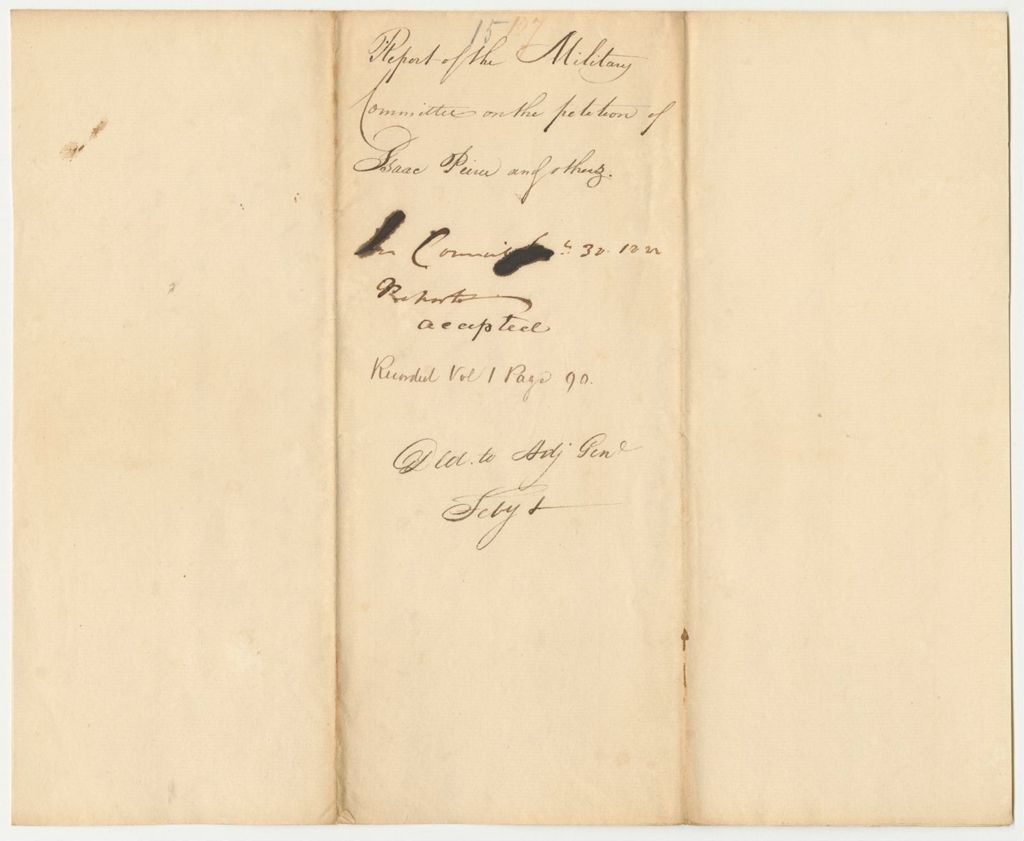 15 107
Report of the Military
Committee on the petition of
Isaac Peirce and others.
In Council 30. 1822
Reports
accepted
Recorded Vol 1 Page 90.
Dld. to Adj Genl